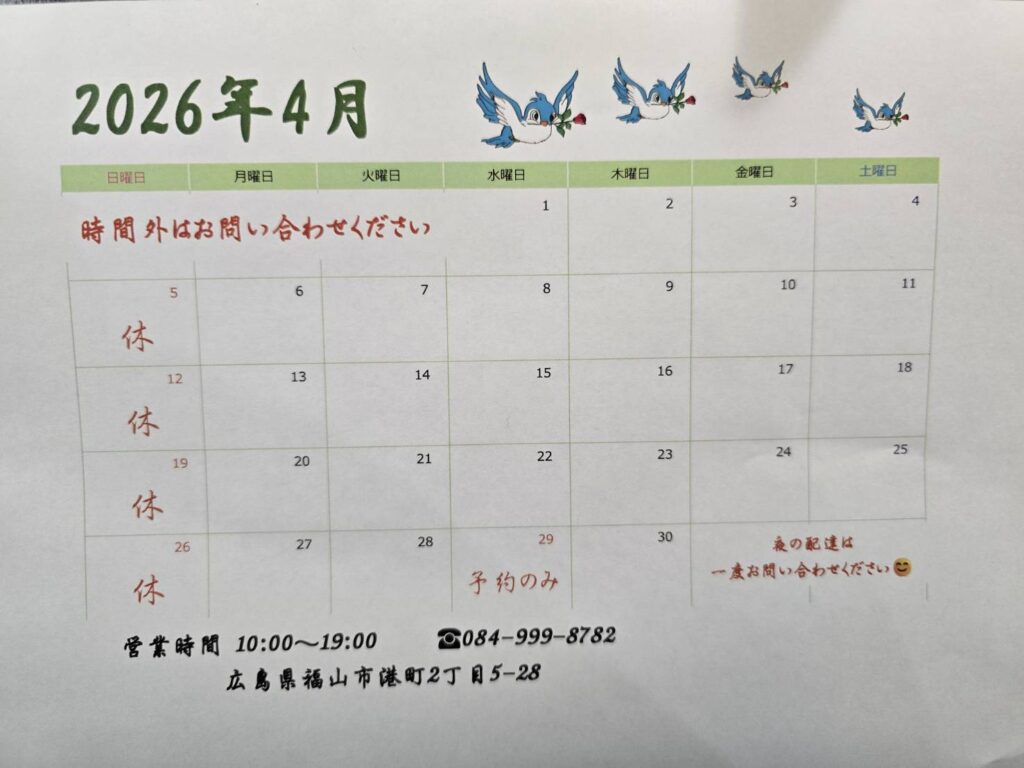 2026年4月
日曜日 月曜日 火曜日 水曜日 木曜日 金曜日 土曜日
1 2 3 4
時間外はお問い合わせください
5 6 7 8 9 10 11
休
12 13 14 15 16 17 18
休
19 20 21 22 23 24 25
休
26 27 28 29 30
夜の配達は
一度お問い合わせください😊
休 予約のみ
営業時間 10:00～19:00 ☎084-999-8782
広島県福山市港町2丁目5-28